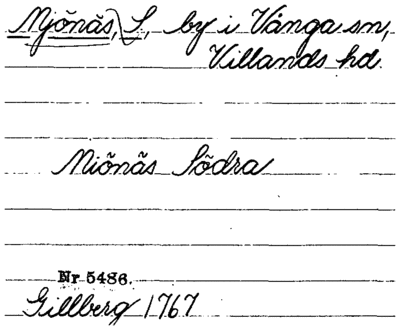 Mjönäs, S, by i Vånga sn,
Villands hd
Miönäs Södra
Nr 5486.
Gillberg 1767